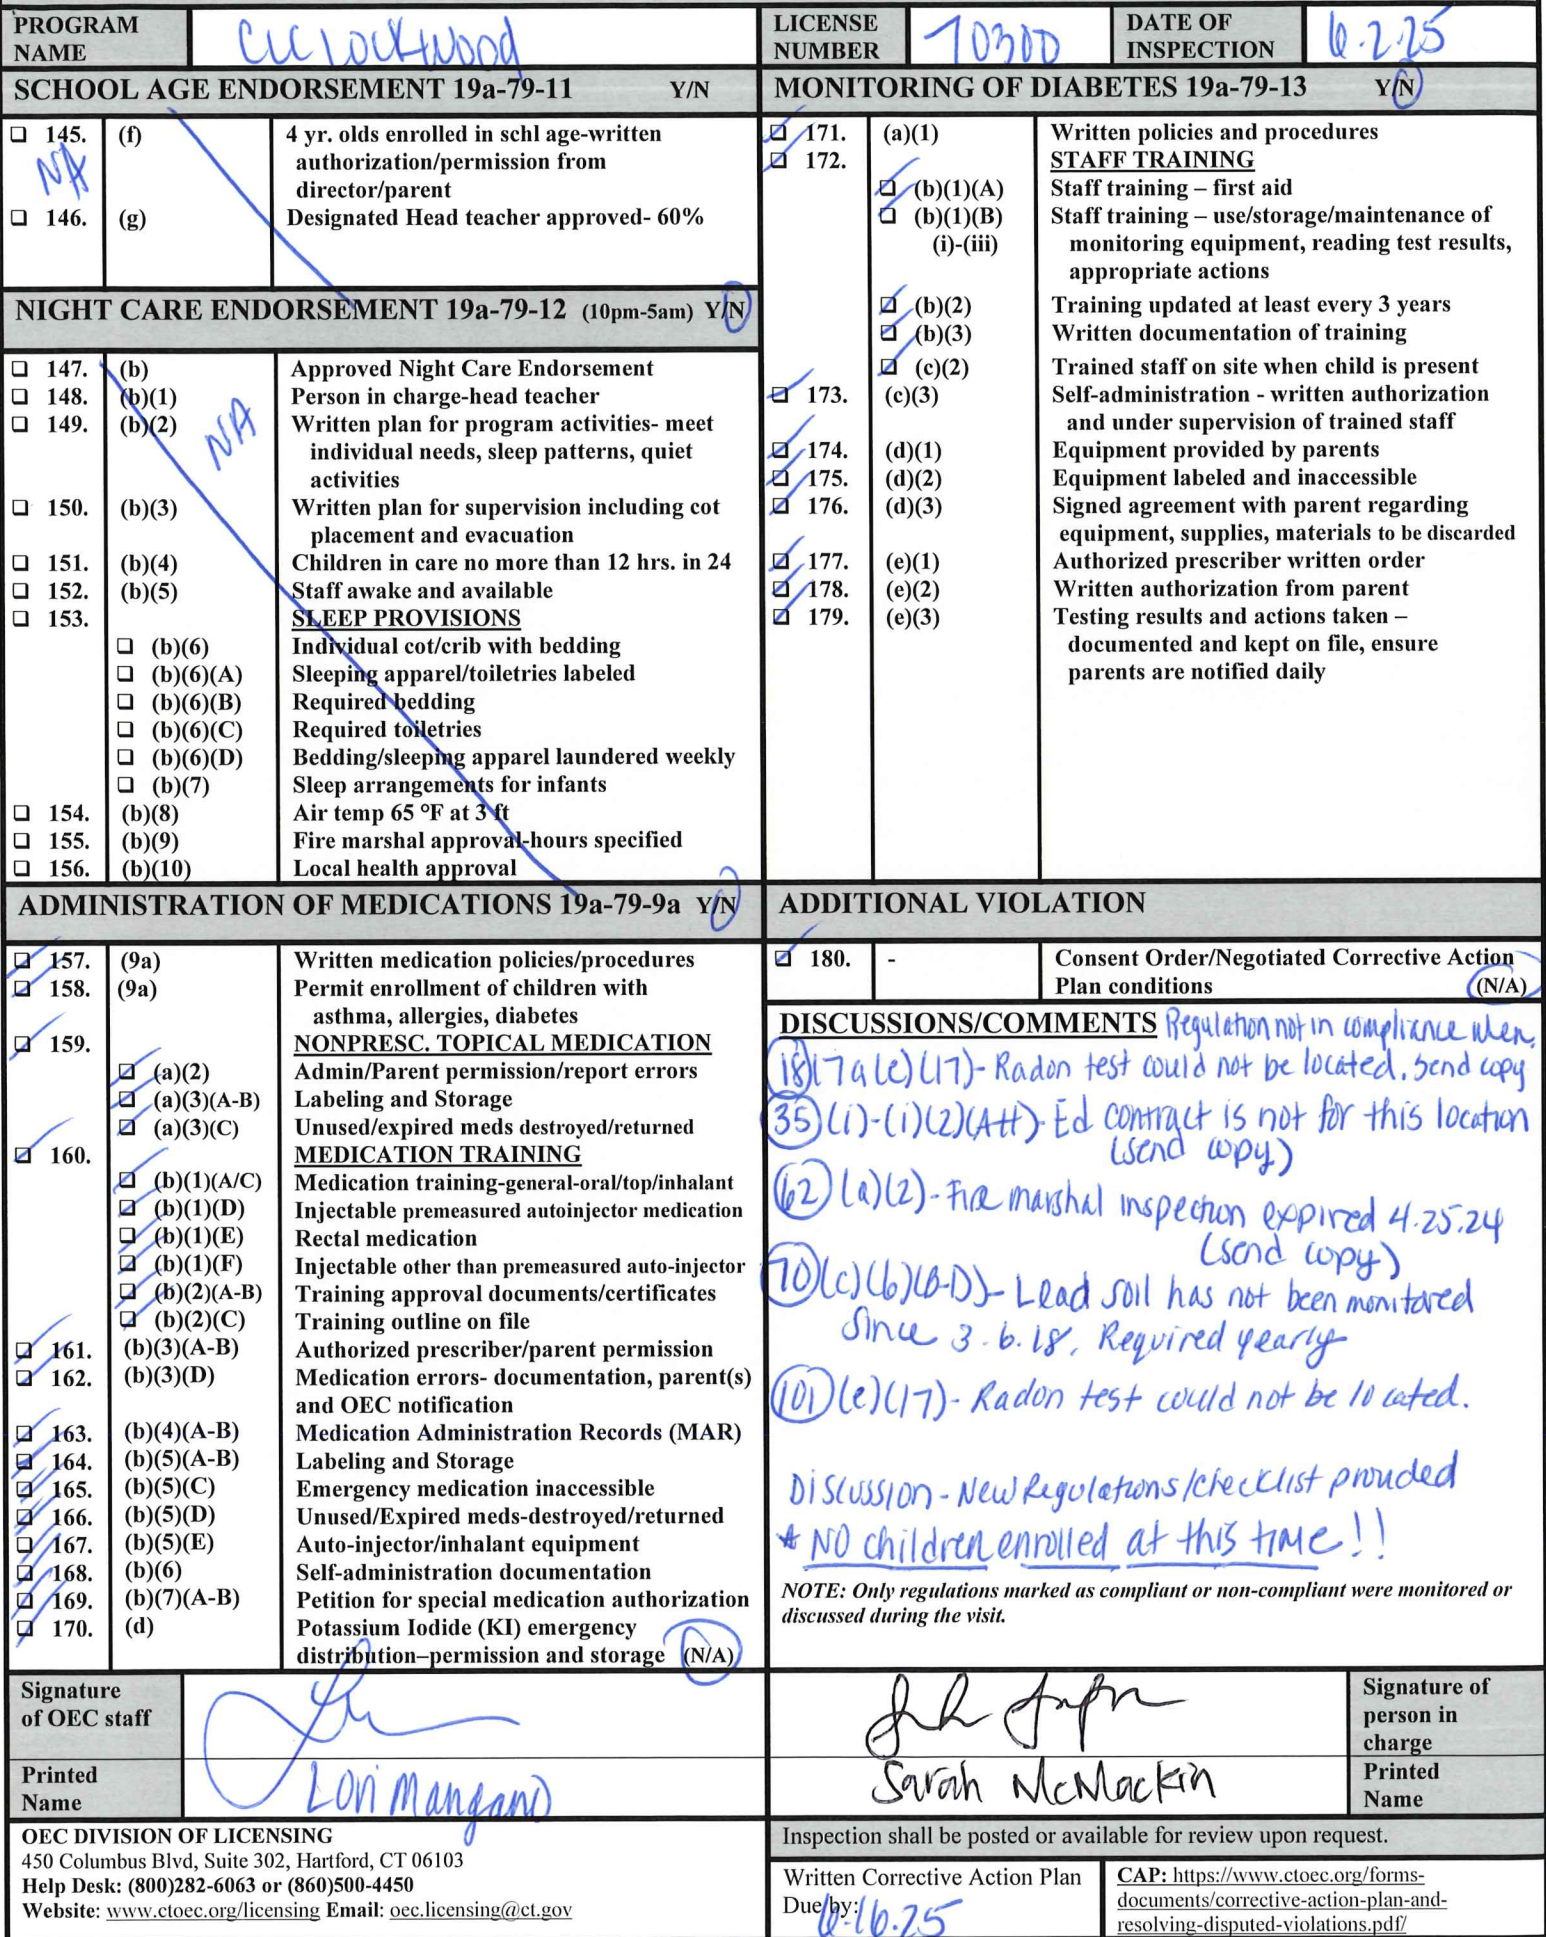 PROGRAM NAME CLC Lockwood
LICENSE NUMBER 70300
DATE OF INSPECTION 6.2.25
SCHOOL AGE ENDORSEMENT 19a-79-11 Y/N
❑ 145. (f) 4 yr. olds enrolled in schl age-written
authorization/permission from
director/parent
NA
❑ 146. (g) Designated Head teacher approved- 60%
NIGHT CARE ENDORSEMENT 19a-79-12 (10pm-5am) Y/N
❑ 147. (b) Approved Night Care Endorsement
❑ 148. (b)(1) Person in charge-head teacher
❑ 149. (b)(2) Written plan for program activities- meet
individual needs, sleep patterns, quiet
activities
NA
❑ 150. (b)(3) Written plan for supervision including cot
placement and evacuation
❑ 151. (b)(4) Children in care no more than 12 hrs. in 24
❑ 152. (b)(5) Staff awake and available
❑ 153. SLEEP PROVISIONS
❑ (b)(6) Individual cot/crib with bedding
❑ (b)(6)(A) Sleeping apparel/toiletries labeled
❑ (b)(6)(B) Required bedding
❑ (b)(6)(C) Required toiletries
❑ (b)(6)(D) Bedding/sleeping apparel laundered weekly
❑ (b)(7) Sleep arrangements for infants
❑ 154. (b)(8) Air temp 65 °F at 3 ft
❑ 155. (b)(9) Fire marshal approval-hours specified
❑ 156. (b)(10) Local health approval
ADMINISTRATION OF MEDICATIONS 19a-79-9a Y/N
❑ 157. (9a) Written medication policies/procedures
❑ 158. (9a) Permit enrollment of children with
asthma, allergies, diabetes
❑ 159. NONPRESC. TOPICAL MEDICATION
❑ (a)(2) Admin/Parent permission/report errors
❑ (a)(3)(A-B) Labeling and Storage
❑ (a)(3)(C) Unused/expired meds destroyed/returned
❑ 160. MEDICATION TRAINING
❑ (b)(1)(A/C) Medication training-general-oral/top/inhalant
❑ (b)(1)(D) Injectable premeasured autoinjector medication
❑ (b)(1)(E) Rectal medication
❑ (b)(1)(F) Injectable other than premeasured auto-injector
❑ (b)(2)(A-B) Training approval documents/certificates
❑ (b)(2)(C) Training outline on file
❑ 161. (b)(3)(A-B) Authorized prescriber/parent permission
❑ 162. (b)(3)(D) Medication errors- documentation, parent(s)
and OEC notification
❑ 163. (b)(4)(A-B) Medication Administration Records (MAR)
❑ 164. (b)(5)(A-B) Labeling and Storage
❑ 165. (b)(5)(C) Emergency medication inaccessible
❑ 166. (b)(5)(D) Unused/Expired meds-destroyed/returned
❑ 167. (b)(5)(E) Auto-injector/inhalant equipment
❑ 168. (b)(6) Self-administration documentation
❑ 169. (b)(7)(A-B) Petition for special medication authorization
❑ 170. (d) Potassium Iodide (KI) emergency
distribution–permission and storage (N/A)
MONITORING OF DIABETES 19a-79-13 Y/N
❑ 171. (a)(1) Written policies and procedures
❑ 172. STAFF TRAINING
❑ (b)(1)(A) Staff training – first aid
❑ (b)(1)(B) Staff training – use/storage/maintenance of
(i)-(iii) monitoring equipment, reading test results,
appropriate actions
❑ (b)(2) Training updated at least every 3 years
❑ (b)(3) Written documentation of training
❑ (c)(2) Trained staff on site when child is present
❑ 173. (c)(3) Self-administration - written authorization
and under supervision of trained staff
❑ 174. (d)(1) Equipment provided by parents
❑ 175. (d)(2) Equipment labeled and inaccessible
❑ 176. (d)(3) Signed agreement with parent regarding
equipment, supplies, materials to be discarded
❑ 177. (e)(1) Authorized prescriber written order
❑ 178. (e)(2) Written authorization from parent
❑ 179. (e)(3) Testing results and actions taken –
documented and kept on file, ensure
parents are notified daily
ADDITIONAL VIOLATION
❑ 180. - Consent Order/Negotiated Corrective Action
Plan conditions (N/A)
DISCUSSIONS/COMMENTS Regulation not in compliance when.
18 (7a(e)(17)- Radon test could not be located. Send copy
35 (i)-(i)(2)(A-H)- Ed contract is not for this location
(send copy)
62 (a)(2)- Fire marshal inspection expired 4.25.24
(send copy)
70 (c)(6)(B-D)- Lead soil has not been monitored
since 3.6.18. Required yearly
101 (e)(17)- Radon test could not be located.
Discussion- New Regulations/checklist provided
* NO children enrolled at this time!!
NOTE: Only regulations marked as compliant or non-compliant were monitored or
discussed during the visit.
Signature of OEC staff
Printed Name Lori Mangano
Signature of person in charge
Sarah McMackin Printed Name
OEC DIVISION OF LICENSING
450 Columbus Blvd, Suite 302, Hartford, CT 06103
Help Desk: (800)282-6063 or (860)500-4450
Website: www.ctoec.org/licensing Email: oec.licensing@ct.gov
Inspection shall be posted or available for review upon request.
Written Corrective Action Plan
Due by: 6.16.25
CAP: https://www.ctoec.org/forms-
documents/corrective-action-plan-and-
resolving-disputed-violations.pdf/